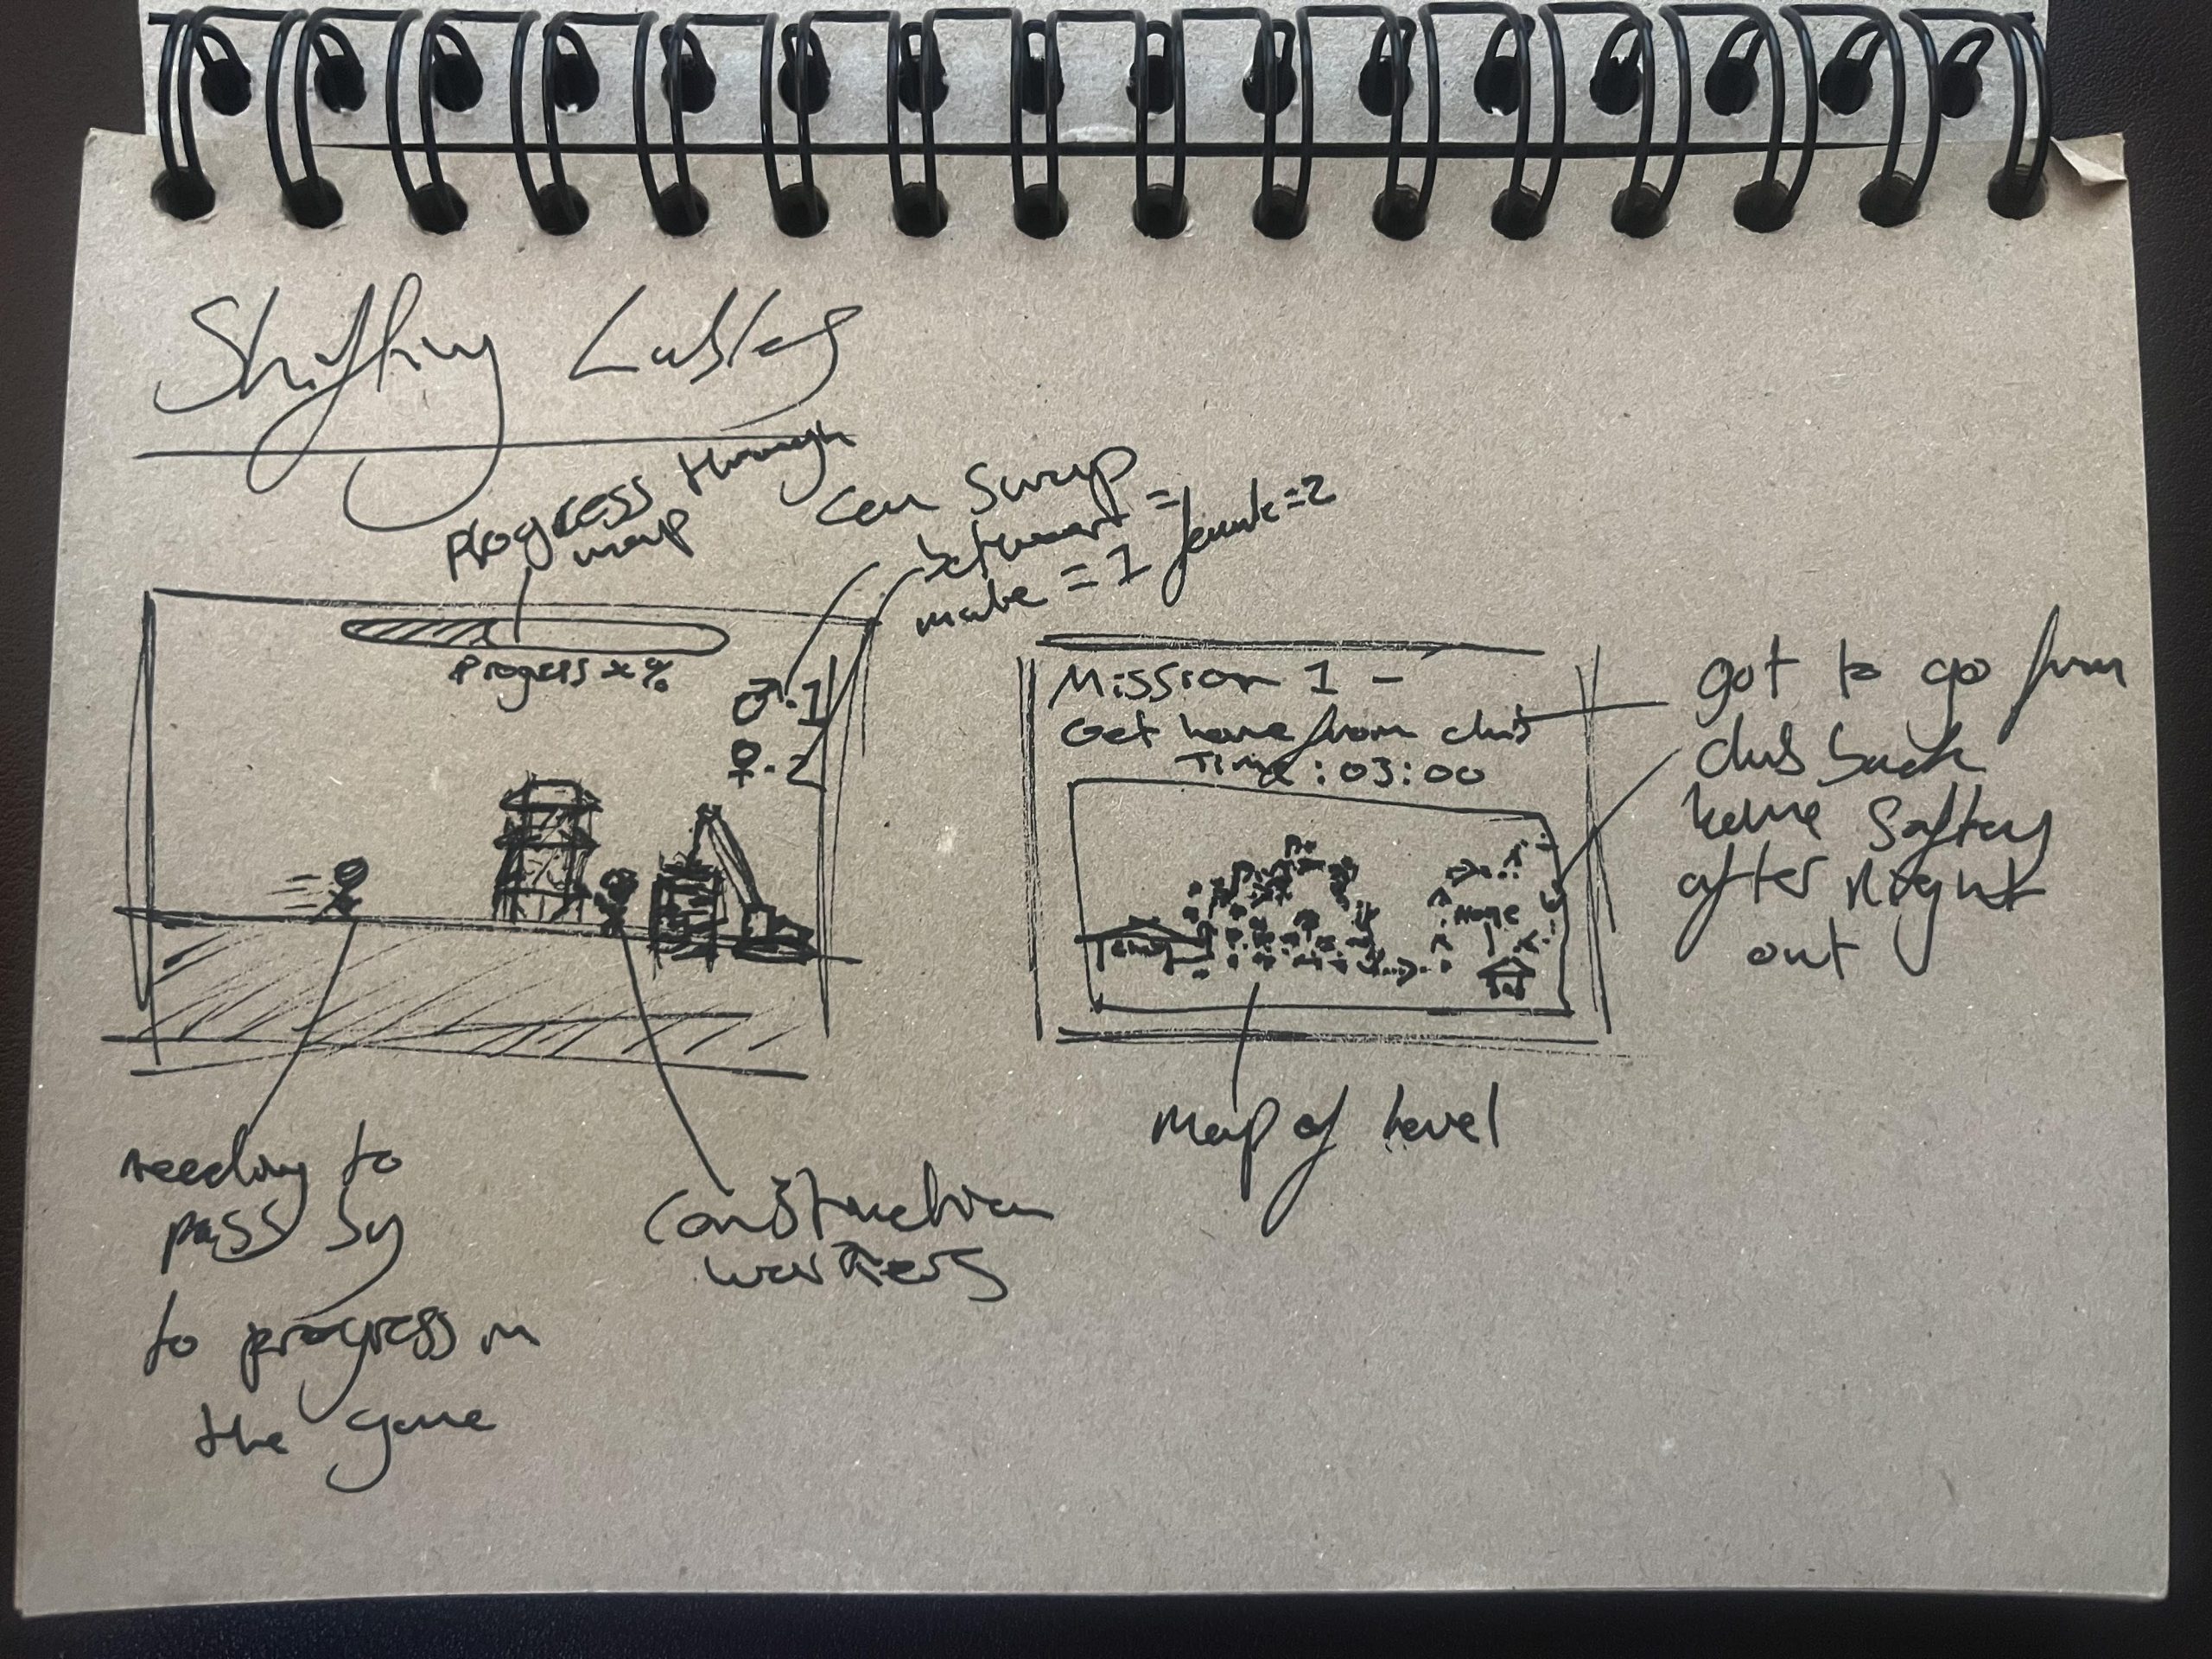 Shifting
Progress through
map
Can swap
between =
male = 1 female = 2
Progress x%
♂.1
♀.2
needing to
pass by
to progress in
the game
Construction
workers
Mission 1 -
Get home from club
Time: 03:00
Home
Map of level
got to go from
club back
home safley
after night
out